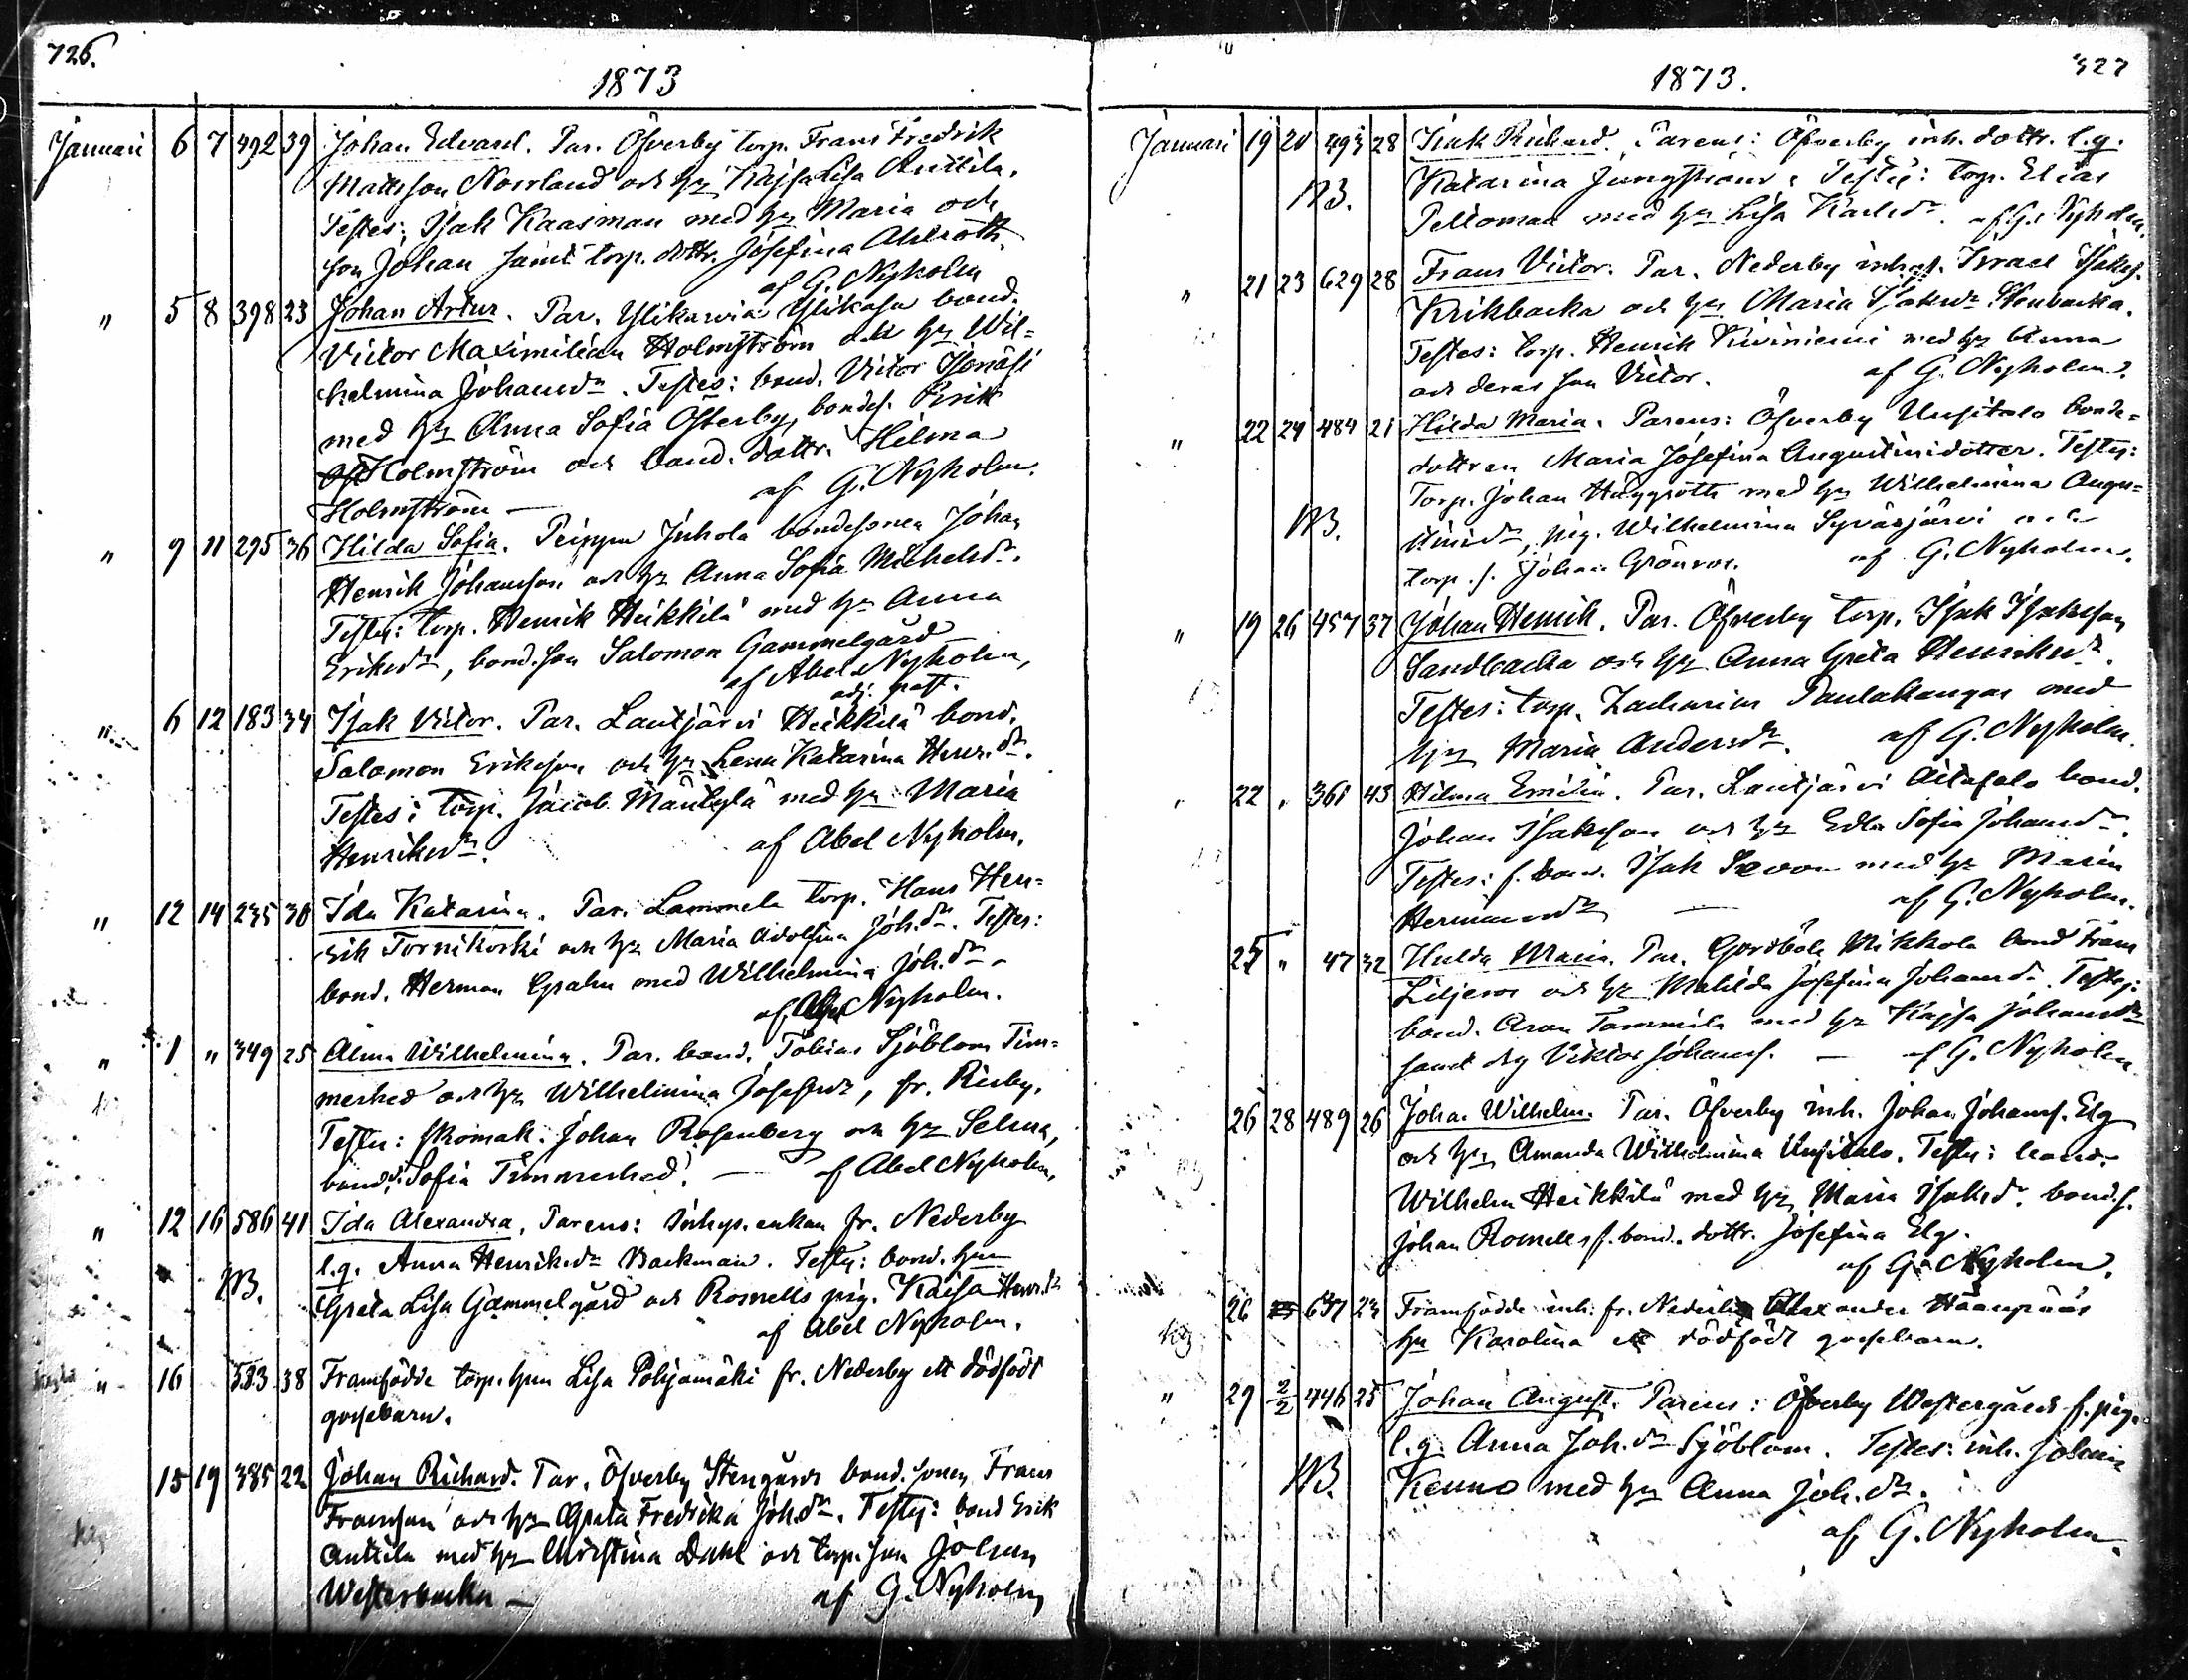 726.
1873
Januari 6 7 492 39 Johan Edvard. Par. Öfverby torp. Frans Fredrik
Mattsson Norrland och h:u Kajsa Lisa Anttila.
Testes: Isak Kaasman med h:u Maria och
son Johan samt torp. dottr. Josefina Ahlroth.
af G. Nyholm
" 5 8 398 23 Johan Artur. Par. Ylikasvia Ylikasa bond.
Victor Maximilian Holmström och h:u Wil=
helmina Johansd:r. Testes: bond. Victor
med h:u Anna Sofia Österby, bondes.
Holmström och bond. dottr. Hilma
Holmström — af G. Nyholm.
" 9 11 295 36 Hilda Sofia. Peippu Juhola bondesonen Johan
Henrik Johansson och h:u Anna Sofia Michelsd:r.
Testes: torp. Henrik Heikkilä med h:u Anna
Eriksd:r, bond. son Salomon Gammelgård
af Abel Nyholm,
adj. past.
" 6 12 183 34 Isak Victor. Par. Lautjärvi Heikkilä bond.
Salomon Eriksson och h:u Lena Katarina Henr.d:r.
Testes: torp. Jacob Mäntylä med h:u Maria
Henriksd:r. af Abel Nyholm.
" 12 14 235 30 Ida Katarina. Par. Lammela torp. Hans Hen=
rik Tornikoski och h:u Maria Adolfina Joh.d:r. Testes:
bond. Herman Grahn med Wilhelmina Joh.d:r.
af Abel Nyholm.
" 1 " 349 25 Alma Wilhelmina. Par. bond. Tobias Sjöblom Tim=
merhed och h:u Wilhelmina Josefsd:r, fr. Risby.
Testes: skomak. Johan Rosenberg och h:u Selma,
bond.d. Sofia Timmerhed. — af Abel Nyholm,
" 12 16 586 41 Ida Alexandra. Parens: inhys. enkan fr. Nederby
l.g. Anna Henriksd:r Backman. Testes: bond. h:un
NB. Greta Lisa Gammelgård och Rosnells pig. Kaisa Henr.d:r
af Abel Nyholm.
" 16 533 38 Framfödde torp. h:un Lisa Pohjamäki fr. Nederby ett dödfödt
gossebarn.
15 19 385 22 Johan Richard. Par. Öfverby Stengårds bond. sonen Frans
Fransson och h:u Greta Fredrika Joh.d:r. Testes: bond Erik
Anttila med h:u Christina Dahl och torp. son Johan
Westerbacka — af G. Nyholm
327
1873.
Januari 19 20 493 28 Isak Richard. Parens: Öfverby inh. dottr. l.g.
NB. Katarina Jungstrand. Testes: torp. Elias
Peltomaa med h:u Lisa Karlsd:r. af G. Nyholm.
" 21 23 629 28 Frans Victor. Par. Nederby inhys. Israel Isaks.
Krikbacka och h:u Maria Isaksd:r Stenbacka.
Testes: torp. Henrik Kiviniemi med h:u Anna
och deras son Victor. af G. Nyholm.
" 22 24 484 21 Hilda Maria. Parens: Öfverby Uusitalo bonde=
dottren Maria Josefina Augustinidotter. Testes:
Torp. Johan Häggroth med h:u Wilhelmina Augu=
NB. stinisd:r, pig. Wilhelmina Syväsjärvi
torp. s. Johan Grönroos. af G. Nyholm.
" 19 26 457 37 Johan Henrik. Par. Öfverby torp. Isak Isaksson
Sandbacka och h:u Anna Greta Henriksd:r.
Testes: torp. Zacharias Paulakangas med
h:u Maria Andersd:r. af G. Nyholm.
22 " 361 43 Hilma Emilia. Par. Lautjärvi Aitasalo bond.
Johan Isaksson och h:u Edla Sofia Johansd:r.
Testes: f. bond. Isak med h:u Maria
Hermansd:r — af G. Nyholm.
25 " 47 32 Hulda Maria. Par. Gordböle Mikkola bond Frans
Liljeros och h:u Matilda Josefina Johansd:r. Testes:
bond. Aron Tommila med h:u Kajsa Johansd:r
samt drg Viktor Johans. — af G. Nyholm
26 28 489 26 Johan Wilhelm. Par. Öfverby inh. Johan Johans. Elg
och h:u Amanda Wilhelmina Uusitalo. Testes: bond.
Wilhelm Heikkilä med h:u Maria Isaksd:r. bond.s.
Johan Rosnells f. bond. dottr. Josefina Elg.
af G. Nyholm.
26 637 23 Framfödde inh. fr. Nederby Alexander Häänpääs
h:u Karolina ett dödfödt gossebarn.
" 29 2/2 446 25 Johan August. Parens: Öfverby Westergårds f. pig.
l.g. Anna Joh.d:r Sjöblom. Testes: inh. Johan
NB. Kenno med h:u Anna Joh.d:r.
af G. Nyholm.